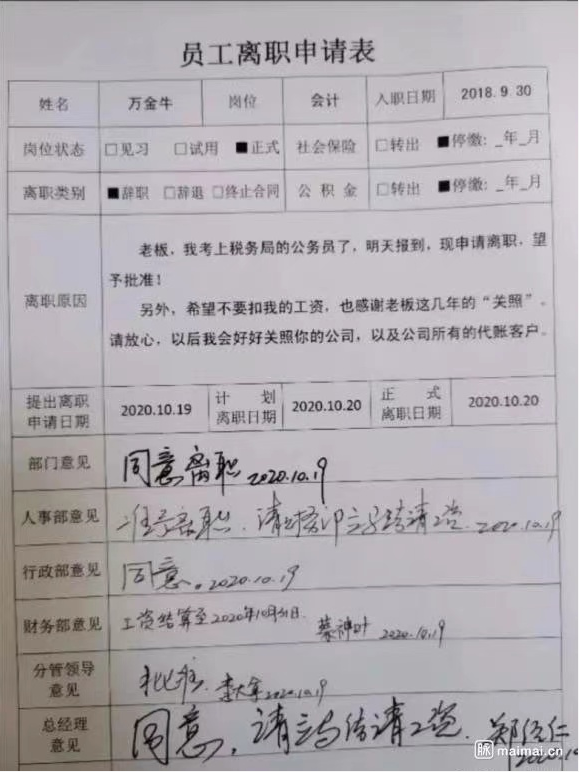 员工离职申请表
姓名 万金牛 岗位 会计 入职日期 2018.9.30
岗位状态 □见习 □试用 ■正式 社会保险 □转出 ■停缴:_年_月
离职类别 ■辞职 □辞退 □终止合同 公积金 □转出 ■停缴:_年_月
离职原因
老板，我考上税务局的公务员了，明天报到，现申请离职，望
予批准！
另外，希望不要扣我的工资，也感谢老板这几年的“关照”。
请放心，以后我会好好关照你的公司，以及公司所有的代账客户。
提出离职
申请日期
2020.10.19
计划
离职日期
2020.10.20
正式
离职日期
2020.10.20
部门意见 同意离职 2020.10.19
人事部意见 准予离职. 请 结清工资. 2020.10.19
行政部意见 同意。2020.10.19
财务部意见 工资结算至2020年10月31日. 2020.10.19
分管领导
意见
批准. 2020.10.19
总经理
意见
同意，请立与结清工资. 郑
2020.10
脉 maimai.cn